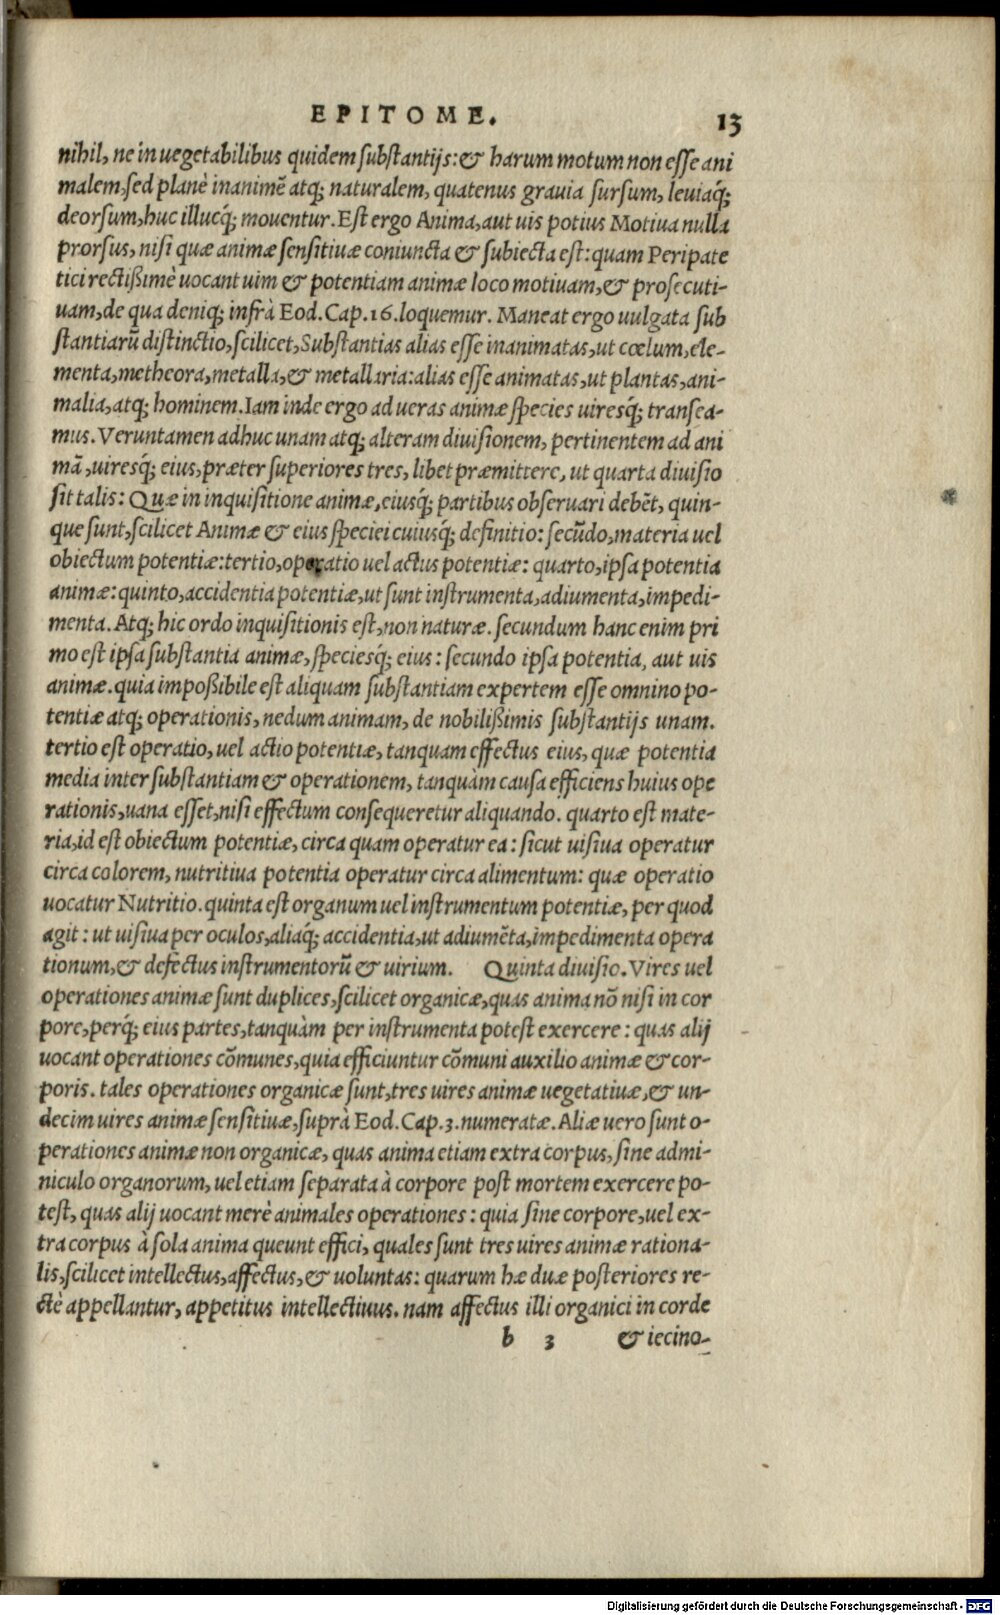 EPITOME. 13
nihil, ne in uegetabilibus quidem substantijs: & harum motum non esse ani
malem, sed planè inanimẽ atq; naturalem, quatenus grauia sursum, leuiaq́;
deorsum, huc illucq́; mouentur. Est ergo Anima, aut uis potius Motiua nulla
prorsus, nisi quæ animæ sensitiuæ coniuncta & subiecta est: quam Peripate
tici rectißimè uocant uim & potentiam animæ loco motiuam, & prosecuti-
uam, de qua deniq; infrà Eod. Cap. 16. loquemur. Maneat ergo uulgata sub
stantiarũ distinctio, scilicet, Substantias alias esse inanimatas, ut cœlum, ele-
menta, metheora, metalla, & metallaria: alias esse animatas, ut plantas, ani-
malia, atq; hominem. Iam inde ergo ad ueras animæ species uiresq́; transea-
mus. Veruntamen adhuc unam atq; alteram diuisionem, pertinentem ad ani
mã, uiresq́; eius, præter superiores tres, libet præmittere, ut quarta diuisio
sit talis: Quæ in inquisitione animæ, eiusq́; partibus obseruari debẽt, quin-
que sunt, scilicet Animæ & eius speciei cuiusq́; definitio: secũdo, materia uel
obiectum potentiæ: tertio, operatio uel actus potentiæ: quarto, ipsa potentia
animæ: quinto, accidentia potentiæ, ut sunt instrumenta, adiumenta, impedi-
menta. Atq; hic ordo inquisitionis est, non naturæ. secundum hanc enim pri
mo est ipsa substantia animæ, speciesq́; eius: secundo ipsa potentia, aut uis
animæ. quia impoßibile est aliquam substantiam expertem esse omnino po-
tentiæ atq; operationis, nedum animam, de nobilißimis substantijs unam.
tertio est operatio, uel actio potentiæ, tanquam effectus eius, quæ potentia
media inter substantiam & operationem, tanquàm causa efficiens huius ope
rationis, uana esset, nisi effectum consequeretur aliquando. quarto est mate-
ria, id est obiectum potentiæ, circa quam operatur ea: sicut uisiua operatur
circa colorem, nutritiua potentia operatur circa alimentum: quæ operatio
uocatur Nutritio. quinta est organum uel instrumentum potentiæ, per quod
agit: ut uisiua per oculos, aliaq́; accidentia, ut adiumẽta, impedimenta opera
tionum, & defectus instrumentorũ & uirium. Quinta diuisio. Vires uel
operationes animæ sunt duplices, scilicet organicæ, quas anima nõ nisi in cor
pore, perq́; eius partes, tanquàm per instrumenta potest exercere: quas alij
uocant operationes cõmunes, quia efficiuntur cõmuni auxilio animæ & cor-
poris. tales operationes organicæ sunt, tres uires animæ uegetatiuæ, & un-
decim uires animæ sensitiuæ, suprà Eod. Cap. 3. numeratæ. Aliæ uero sunt o-
perationes animæ non organicæ, quas anima etiam extra corpus, sine admi-
niculo organorum, uel etiam separata à corpore post mortem exercere po-
test, quas alij uocant merè animales operationes: quia sine corpore, uel ex-
tra corpus à sola anima queunt effici, quales sunt tres uires animæ rationa-
lis, scilicet intellectus, affectus, & uoluntas: quarum hæ duæ posteriores re-
ctè appellantur, appetitus intellectiuus. nam affectus illi organici in corde
b 3 & iecino-
Digitalisierung gefördert durch die Deutsche Forschungsgemeinschaft - DFG